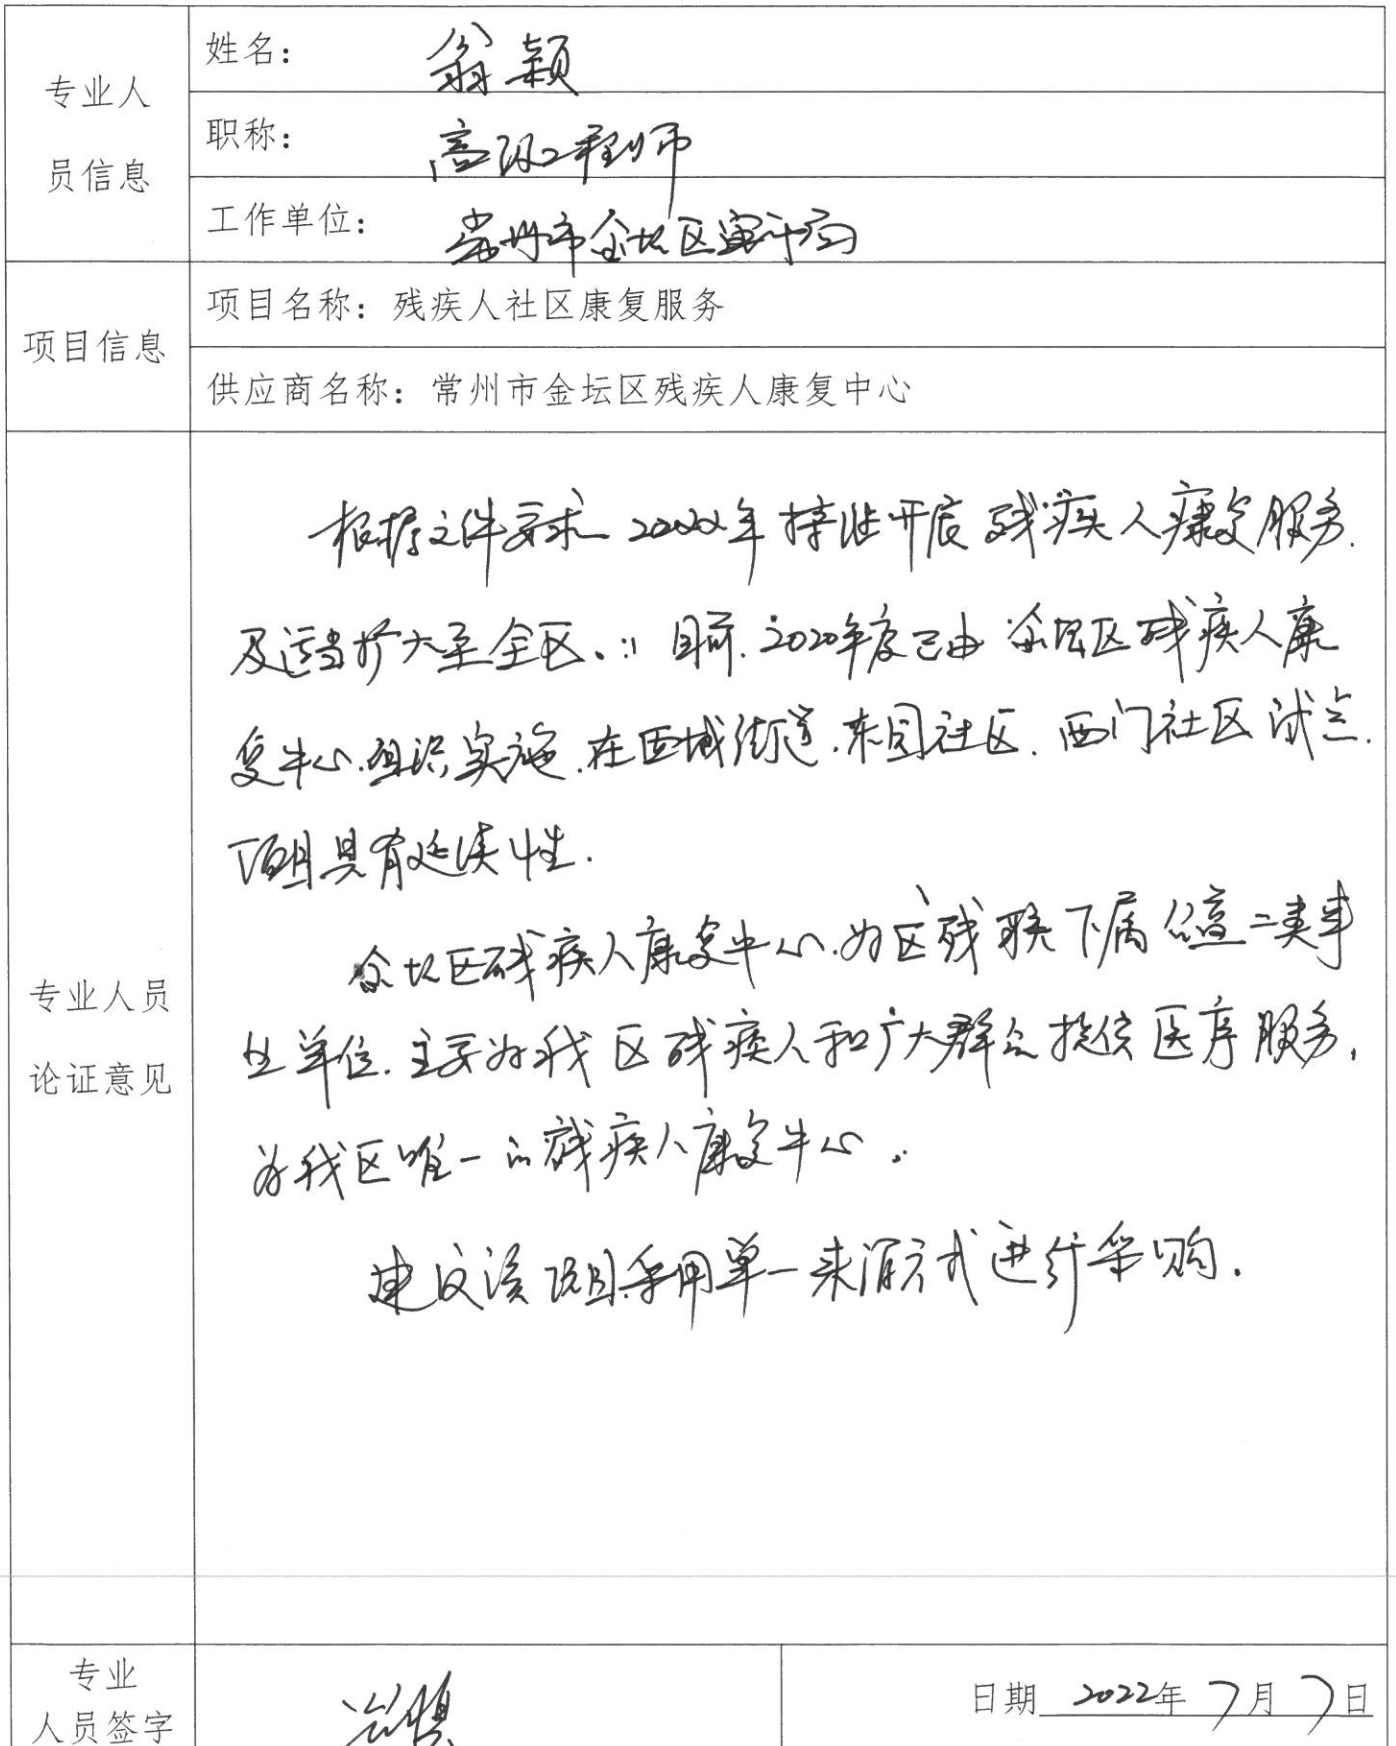 专业人
员信息
姓名： 翁颖
职称： 高级工程师
工作单位： 常州市金坛区审计局
项目信息
项目名称：残疾人社区康复服务
供应商名称：常州市金坛区残疾人康复中心
专业人员
论证意见
根据文件要求 2022年持续开展残疾人康复服务.
及适当扩大至全区. 目前.2020年度已由金坛区残疾人康
复中心.组织实施.在西城街道.东园社区.西门社区试点.
项目具有延续性.
金坛区残疾人康复中心.为区残联下属公益二类事
业单位.主要为我区残疾人和广大群众提供医疗服务,
为我区唯一的残疾人康复中心.
建议该项目采用单一来源方式进行采购.
专业
人员签字
翁颖
日期 2022年7月7日